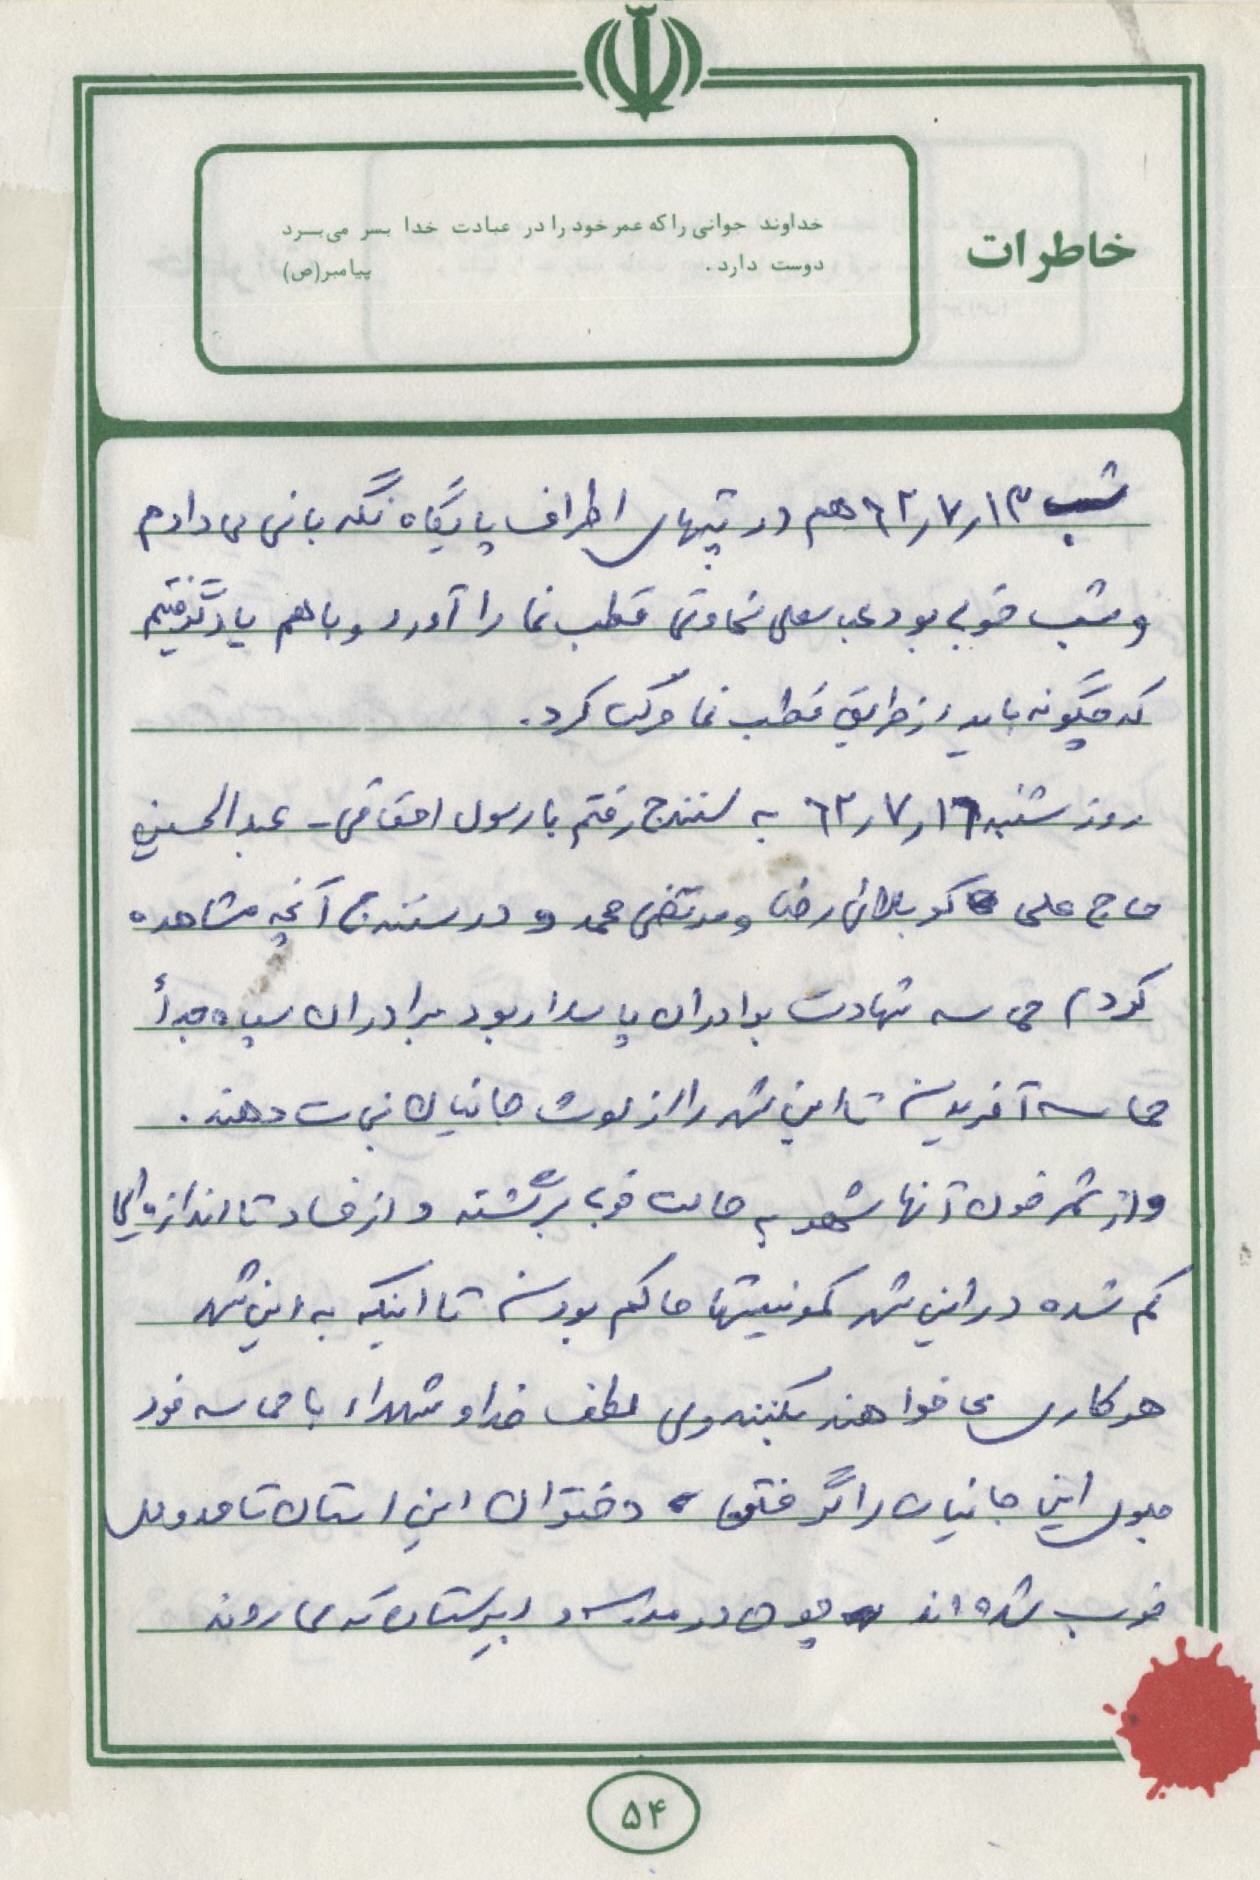 خاطرات
خداوند جوانی را که عمر خود را در عبادت خدا بسر می‌برد
دوست دارد. پیامبر(ص)
شب ۶۲٫۷٫۱۳ هم در تپهای اطراف پایگاه نگه بانی می دادم
و شب خوبی بود قطب نما را آورد و با هم یاد گرفتیم
که چگونه باید از طریق قطب نما حرکت کرد.
روز شنبه ۶۲٫۷٫۱۶ به سنندج رفتم با رسول - عبدالحسین
حاج علی رضا و مرتضی محمد و در سنندج آنچه مشاهده
کردم حماسه شهادت برادران پاسدار بود برادران سپاه جداً
حماسه آفریدند تا این شهر را از لوث جانیان نجات دهند.
و از ثمر خون آنها شهر به حالت خوب برگشته و از فساد تا اندازه ای
کم شده در این شهر کمونیستها حاکم بودند تا اینکه به این شهر
هر کاری می خواهند بکنند ولی لطف خدا و شهداء با حماسه خود
جلوی این جانیان را گرفتند دختران این استان تا حدودی
خوب شده اند چون در مدرسه و دبیرستان که می روند
۵۴